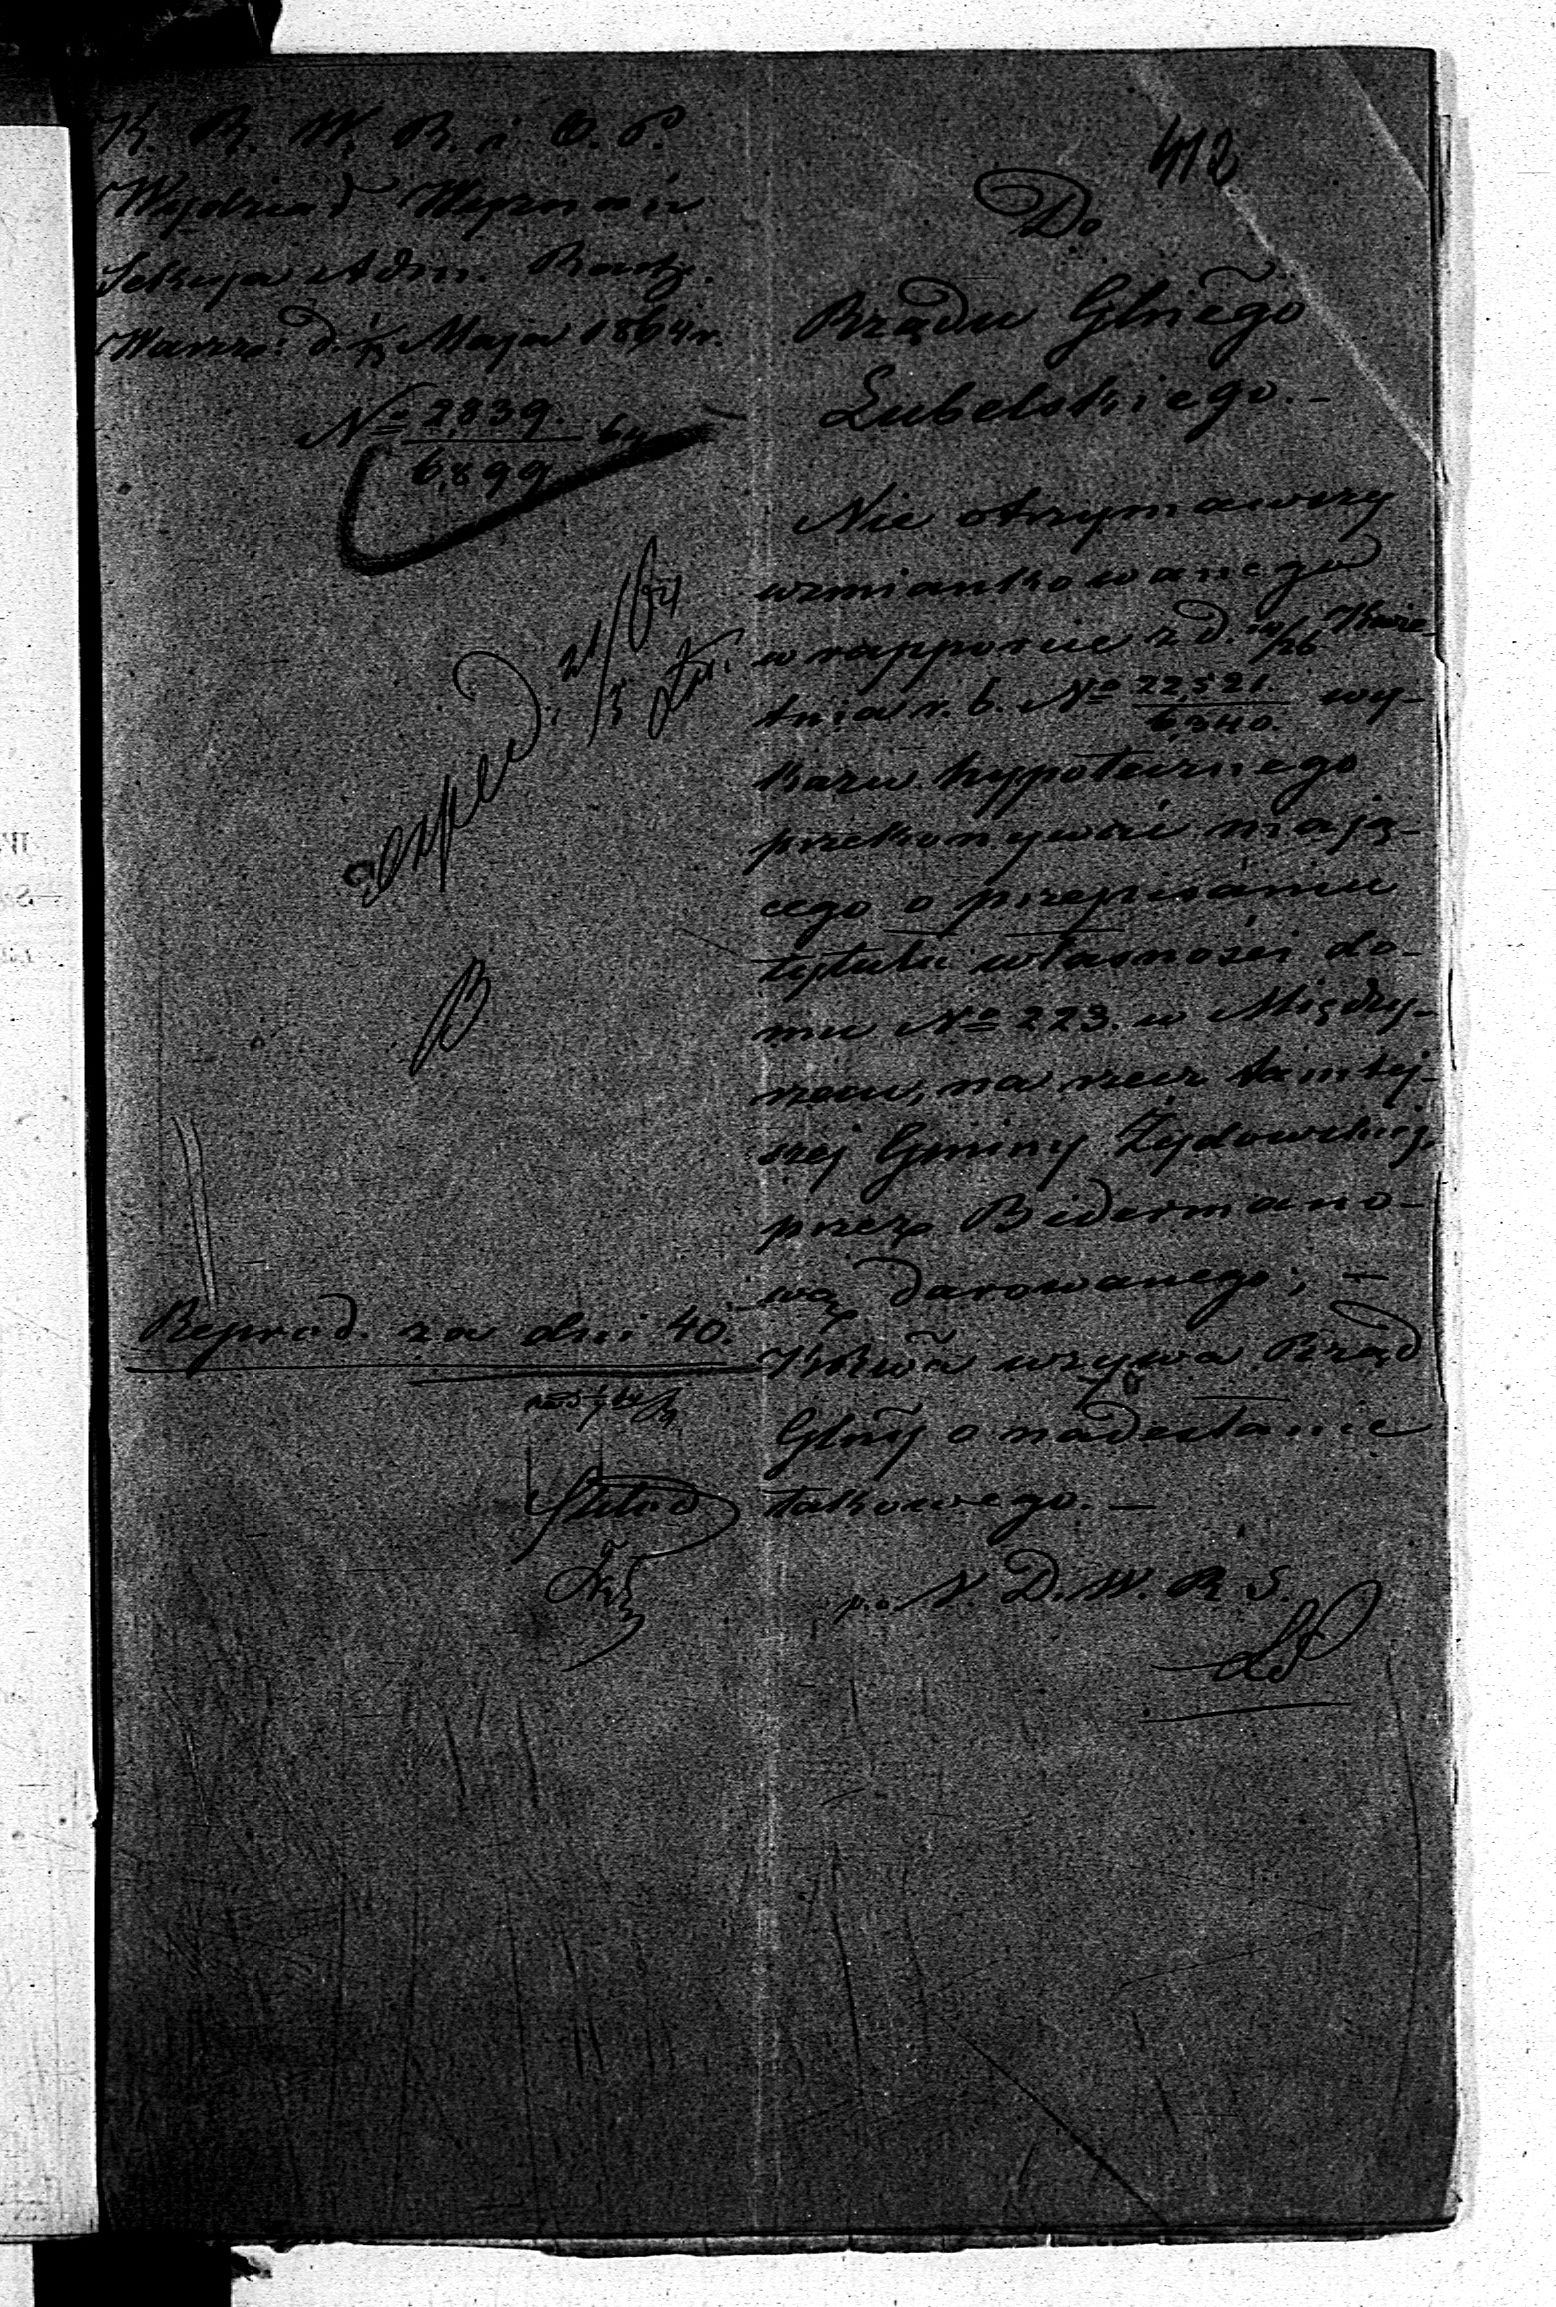 412
K. R. W. R. i O. P.
Wydział Wyznań
Sekcya Adm. Rach.
Warsz: d. Maja 1864 r.
No 2,839. 64
6,899
expeed: 21/5 64
Do
Rządu Glnego
Lubelskiego.-
Nie otrzymawszy
wzmiankowanego
w rapporcie z d. 14/26 Kwie-
tnia r. b. No 22,521. wy-
6,340.
kazu hypotecznego
przekonywać mają-
cego o przepisaniu
tytułu własności do-
mu No 223. w Między-
rzecu, na rzecz tamtej-
szej Gminy Żydowskiej,
przez Bidermano-
wą darowanego; -
Kwa wzywa Rząd
Glny o nadesłanie
takowego. -
Reprod. za dni 40.
p.o. N. D. W. R. S.